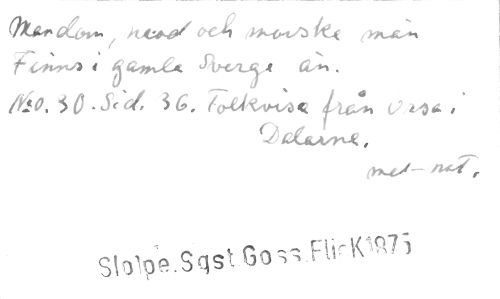 Mandom, mod och morske män
Finns i gamla Sverge än.
No. 30. Sid. 36. Folkvisa från Orsa i
Dalarne.
mel-nat.
Stolpe. Sgst Goss. Flick 1875